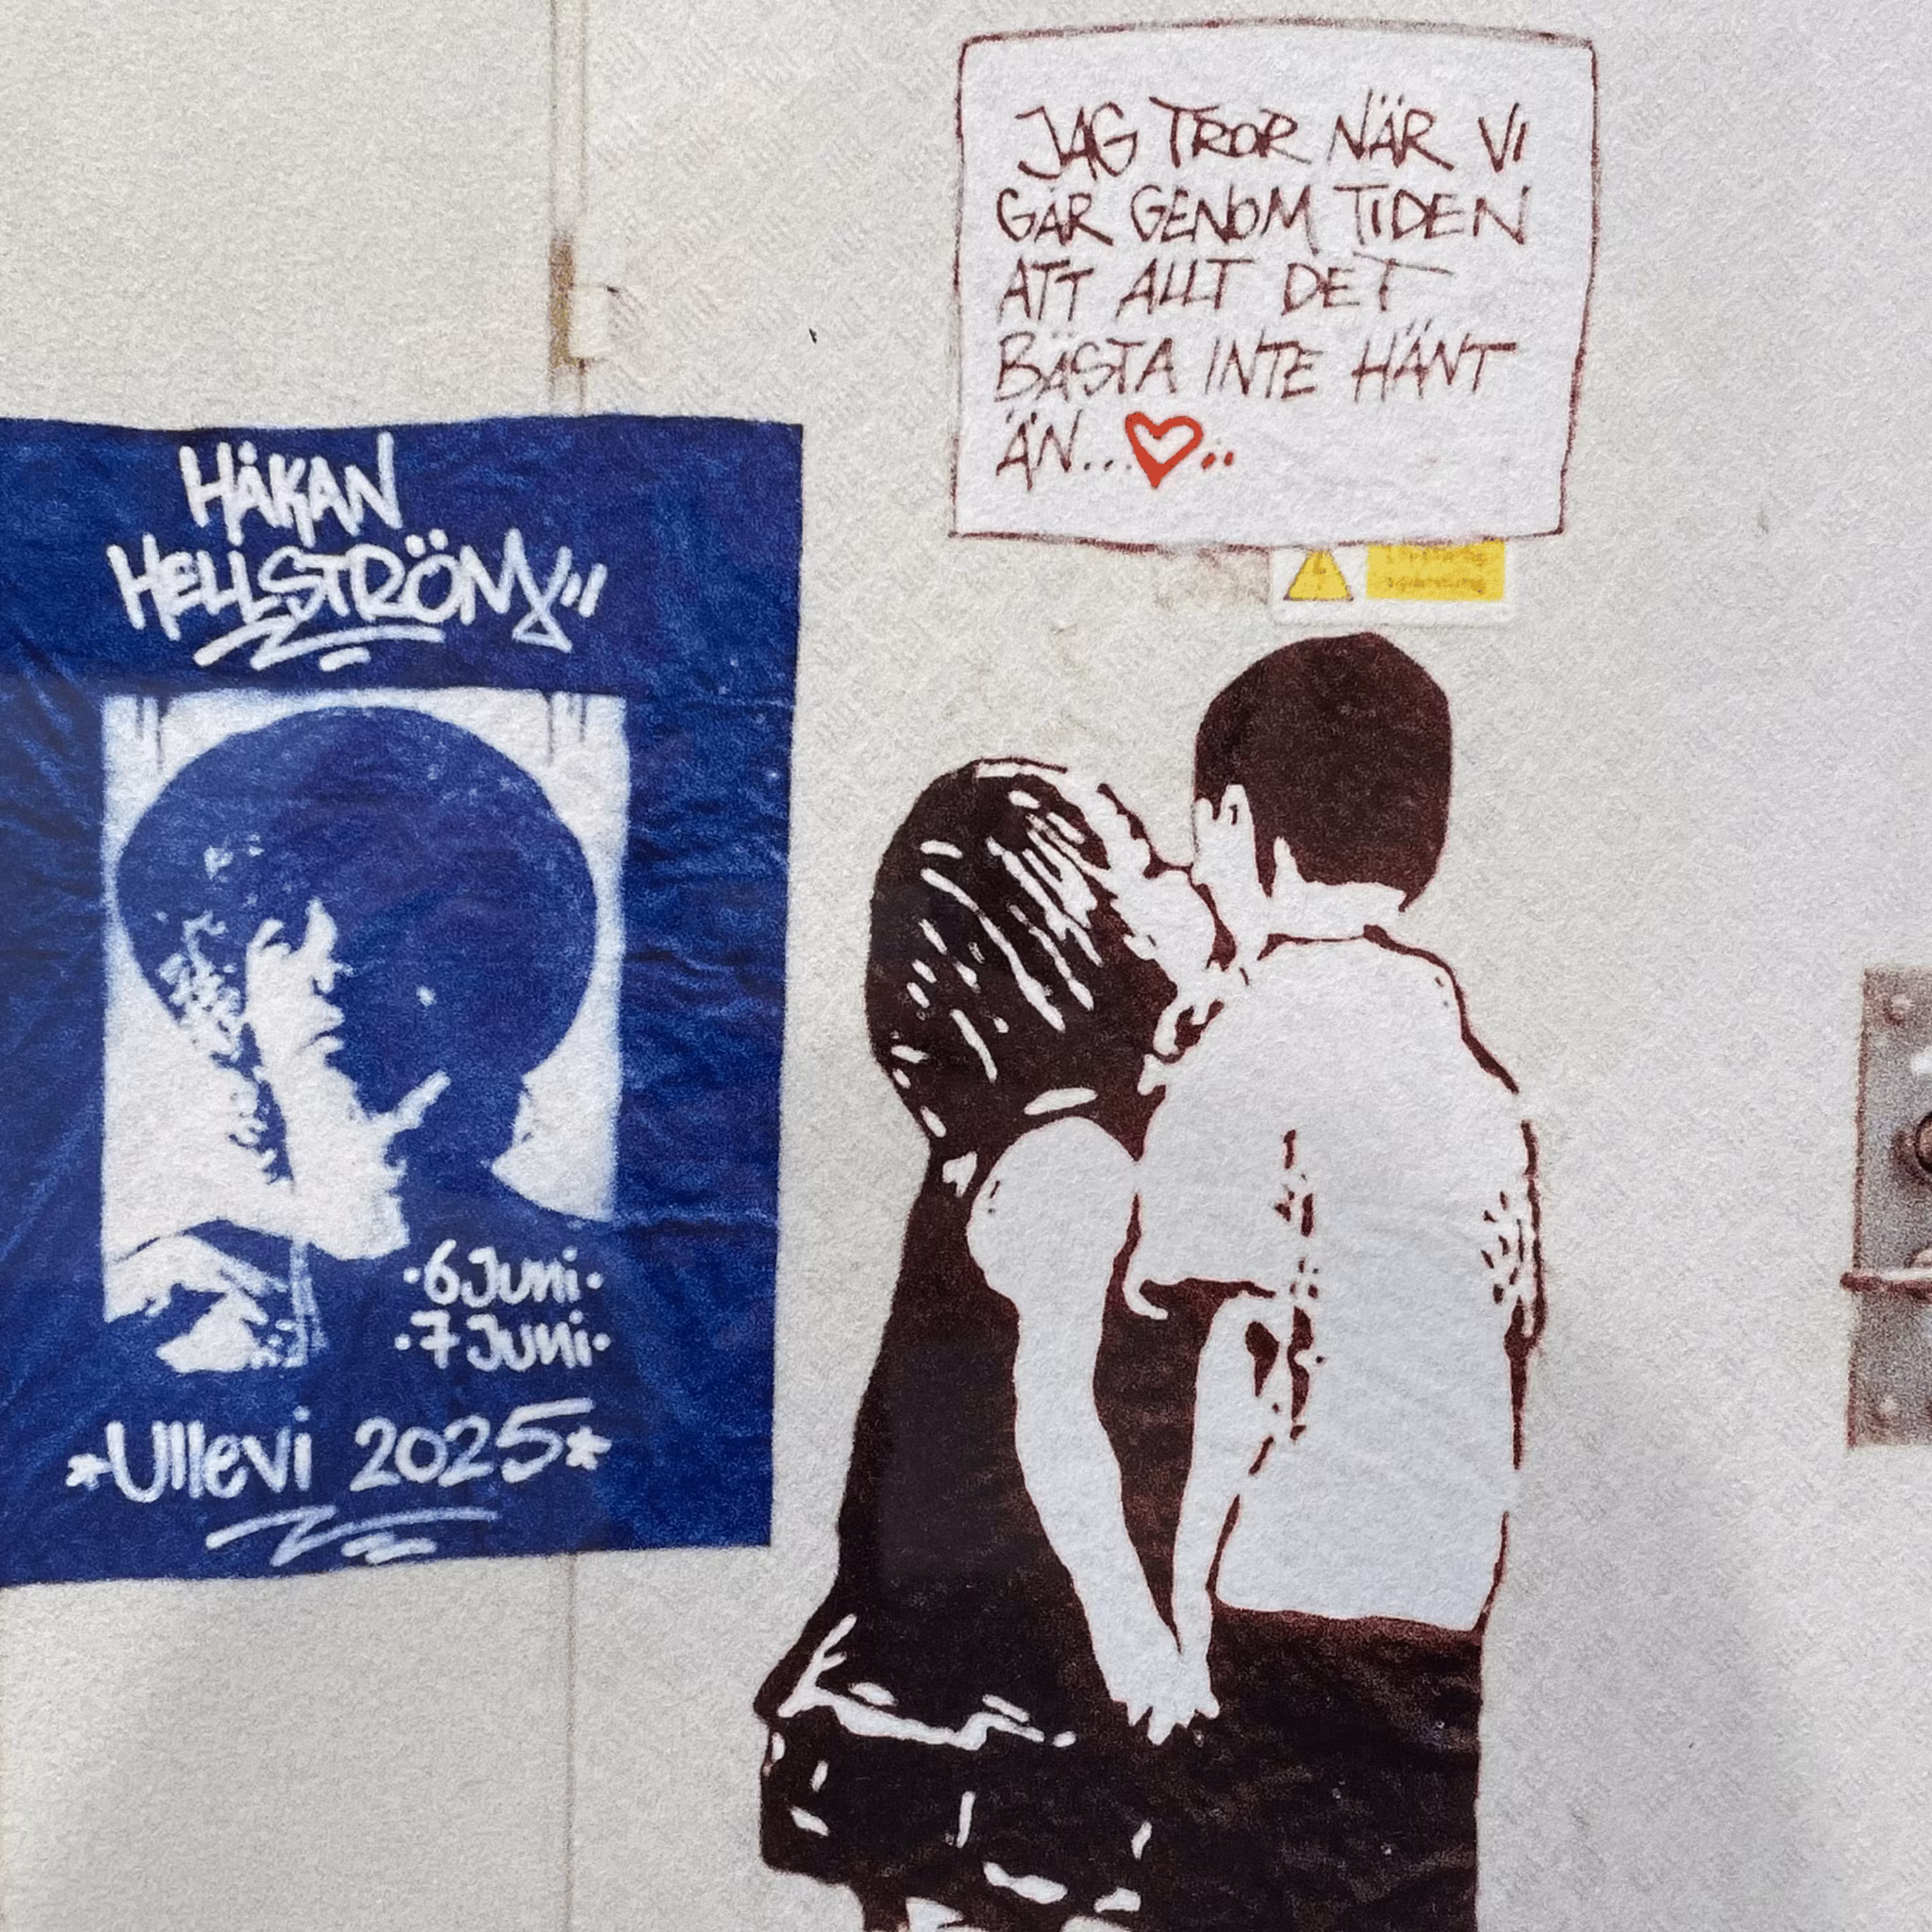 HÅKAN
HELLSTRÖM
·6 Juni·
·7 Juni·
*Ullevi 2025*
JAG TROR NÄR VI
GÅR GENOM TIDEN
ATT ALLT DET
BÄSTA INTE HÄNT
ÄN...♡..